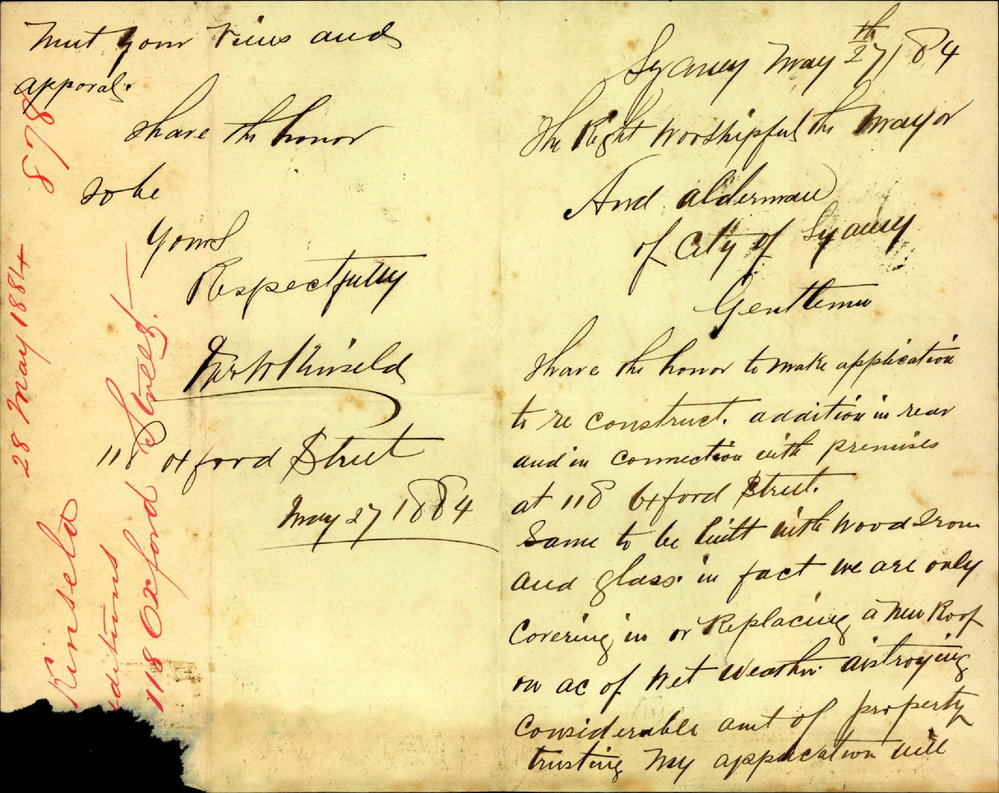 Sydney May 27th 1884
The Right Worshipful the Mayor
And alderman
of City of Sydney
Gentlemen
I have the honor to make application
to re construct. addition in rear
and in connection with premises
at 118 Oxford Street.
Same to be built with Wood Iron
and glass. in fact we are only
Covering in or Replacing a New Roof
on ac of Wet Weather distroying
Considerable amt of property
trusting My application will
meet your views and
apporal.
I have the honor
to be
Yours
Respectfully
Kinseld
118 Oxford Street
May 27 1884
878
28 May 1884
Kinseld
ditions
118 Oxford Street